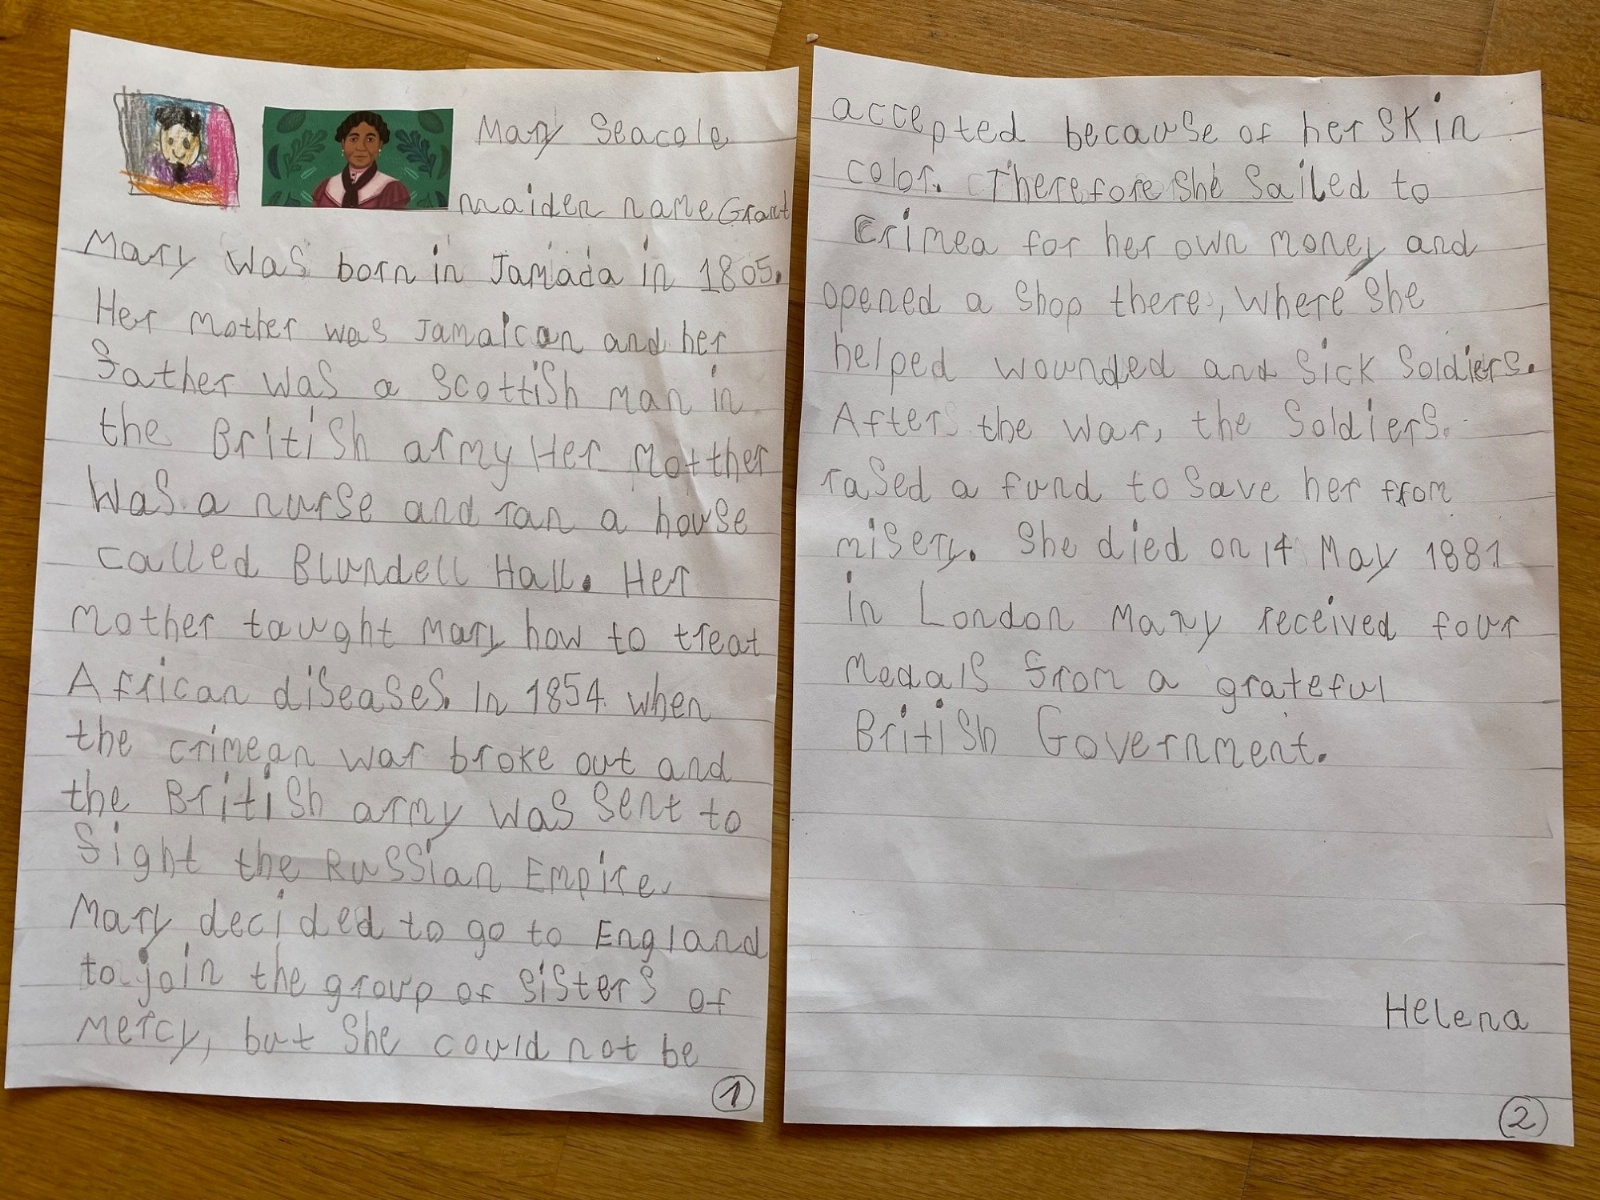 Mary Seacole
maiden name Grant
Mary was born in Jamaica in 1805.
Her mother was Jamaican and her
father was a Scottish man in
the British army Her motther
was a nurse and ran a house
called Blundell Hall. Her
mother taught Mary how to treat
African diseases. In 1854 when
the crimean war broke out and
the British army was sent to
fight the Russian Empire.
Mary decided to go to England
to join the group of sisters of
mercy, but she could not be
1
accepted because of her skin
color. Therefore she sailed to
Crimea for her own money and
opened a shop there, where she
helped wounded and sick soldiers.
After the war, the soldiers
rased a fund to save her from
misery. She died on 14 May 1881
in London Mary received four
medals from a grateful
British Government.
Helena
2